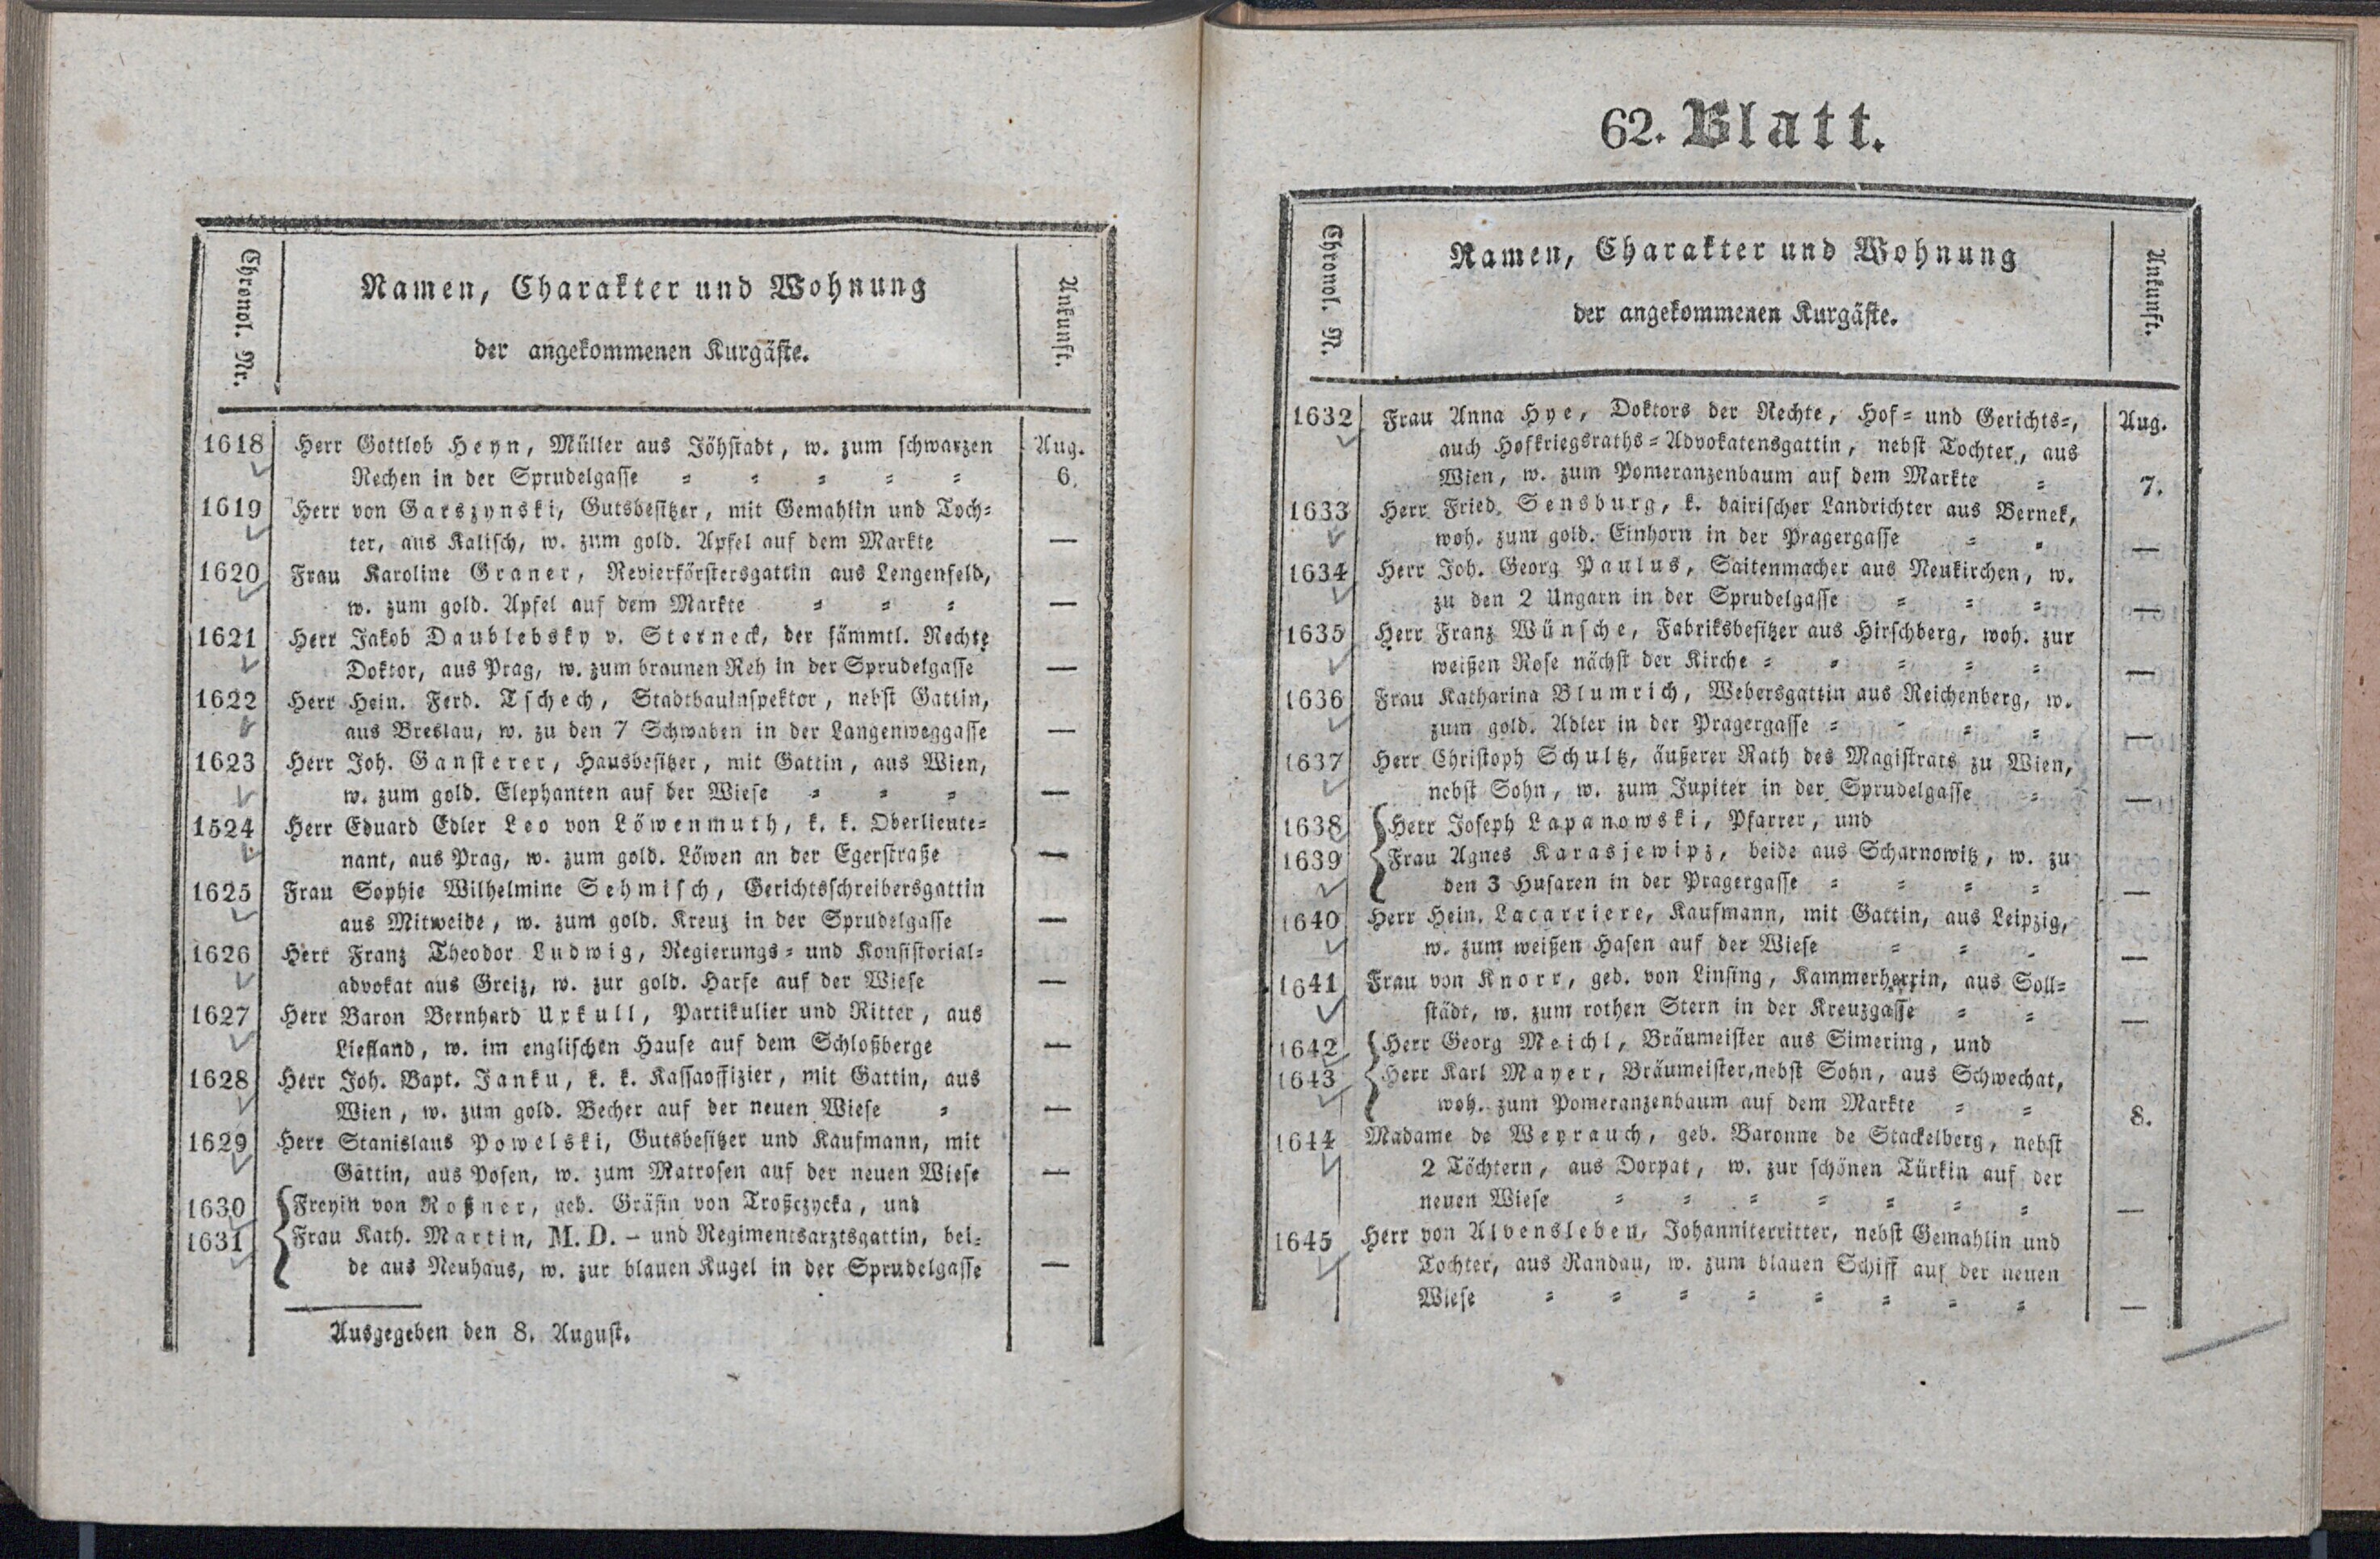 Chronol. Nr.
Namen, Charakter und Wohnung
der angekommenen Kurgäste.
Ankunft.
1618 Herr Gottlob Heyn, Müller aus Jöhstadt, w. zum schwarzen Aug.
Rechen in der Sprudelgasse = = = = = 6.
1619 Herr von Garszynski, Gutsbesitzer, mit Gemahlin und Toch=
ter, aus Kalisch, w. zum gold. Apfel auf dem Markte —
1620 Frau Karoline Graner, Revierförstersgattin aus Lengenfeld,
w. zum gold. Apfel auf dem Markte = = = —
1621 Herr Jakob Daublebsky v. Sterneck, der sämmtl. Rechte
Doktor, aus Prag, w. zum braunen Reh in der Sprudelgasse —
1622 Herr Hein. Ferd. Tschech, Stadtbauinspektor, nebst Gattin,
aus Breslau, w. zu den 7 Schwaben in der Langenweggasse —
1623 Herr Joh. Gansterer, Hausbesitzer, mit Gattin, aus Wien,
w. zum gold. Elephanten auf der Wiese = = = —
1524 Herr Eduard Edler Leo von Löwenmuth, k. k. Oberlieute=
nant, aus Prag, w. zum gold. Löwen an der Egerstraße —
1625 Frau Sophie Wilhelmine Sehmisch, Gerichtsschreibersgattin
aus Mitweide, w. zum gold. Kreuz in der Sprudelgasse —
1626 Herr Franz Theodor Ludwig, Regierungs= und Konsistorial=
advokat aus Greiz, w. zur gold. Harfe auf der Wiese —
1627 Herr Baron Bernhard Uxkull, Partikulier und Ritter, aus
Liefland, w. im englischen Hause auf dem Schloßberge —
1628 Herr Joh. Bapt. Janku, k. k. Kassaoffizier, mit Gattin, aus
Wien, w. zum gold. Becher auf der neuen Wiese = —
1629 Herr Stanislaus Powelski, Gutsbesitzer und Kaufmann, mit
Gattin, aus Posen, w. zum Matrosen auf der neuen Wiese —
1630 Freyin von Roßner, geb. Gräfin von Troßczycka, und
1631 Frau Kath. Martin, M. D. – und Regimentsarztsgattin, bei=
de aus Neuhaus, w. zur blauen Kugel in der Sprudelgasse —
Ausgegeben den 8. August.
62. Blatt.
Chronol. N.
Namen, Charakter und Wohnung
der angekommenen Kurgäste.
Ankunft.
1632 Frau Anna Hye, Doktors der Rechte, Hof= und Gerichts=, Aug.
auch Hofkriegsraths=Advokatensgattin, nebst Tochter, aus
Wien, w. zum Pomeranzenbaum auf dem Markte = 7.
1633 Herr Fried. Sensburg, k. bairischer Landrichter aus Bernek,
woh. zum gold. Einhorn in der Pragergasse = = —
1634 Herr Joh. Georg Paulus, Saitenmacher aus Neukirchen, w.
zu den 2 Ungarn in der Sprudelgasse = = = —
1635 Herr Franz Wünsche, Fabriksbesitzer aus Hirschberg, woh. zur
weißen Rose nächst der Kirche = = = = = —
1636 Frau Katharina Blumrich, Webersgattin aus Reichenberg, w.
zum gold. Adler in der Pragergasse = = = = —
1637 Herr Christoph Schultz, äußerer Rath des Magistrats zu Wien,
nebst Sohn, w. zum Jupiter in der Sprudelgasse = —
1638 Herr Joseph Lapanowski, Pfarrer, und
1639 Frau Agnes Karasjewipz, beide aus Scharnowitz, w. zu
den 3 Husaren in der Pragergasse = = = = —
1640 Herr Hein. Lacarriere, Kaufmann, mit Gattin, aus Leipzig,
w. zum weißen Hasen auf der Wiese = = = —
1641 Frau von Knorr, geb. von Linsing, Kammerherrin, aus Soll=
städt, w. zum rothen Stern in der Kreuzgasse = = —
1642 Herr Georg Meichl, Bräumeister aus Simering, und
1643 Herr Karl Mayer, Bräumeister, nebst Sohn, aus Schwechat,
woh. zum Pomeranzenbaum auf dem Markte = = 8.
1644 Madame de Weyrauch, geb. Baronne de Stackelberg, nebst
2 Töchtern, aus Dorpat, w. zur schönen Türkin auf der
neuen Wiese = = = = = = = —
1645 Herr von Alvensleben, Johanniterritter, nebst Gemahlin und
Tochter, aus Randau, w. zum blauen Schiff auf der neuen
Wiese = = = = = = = = —